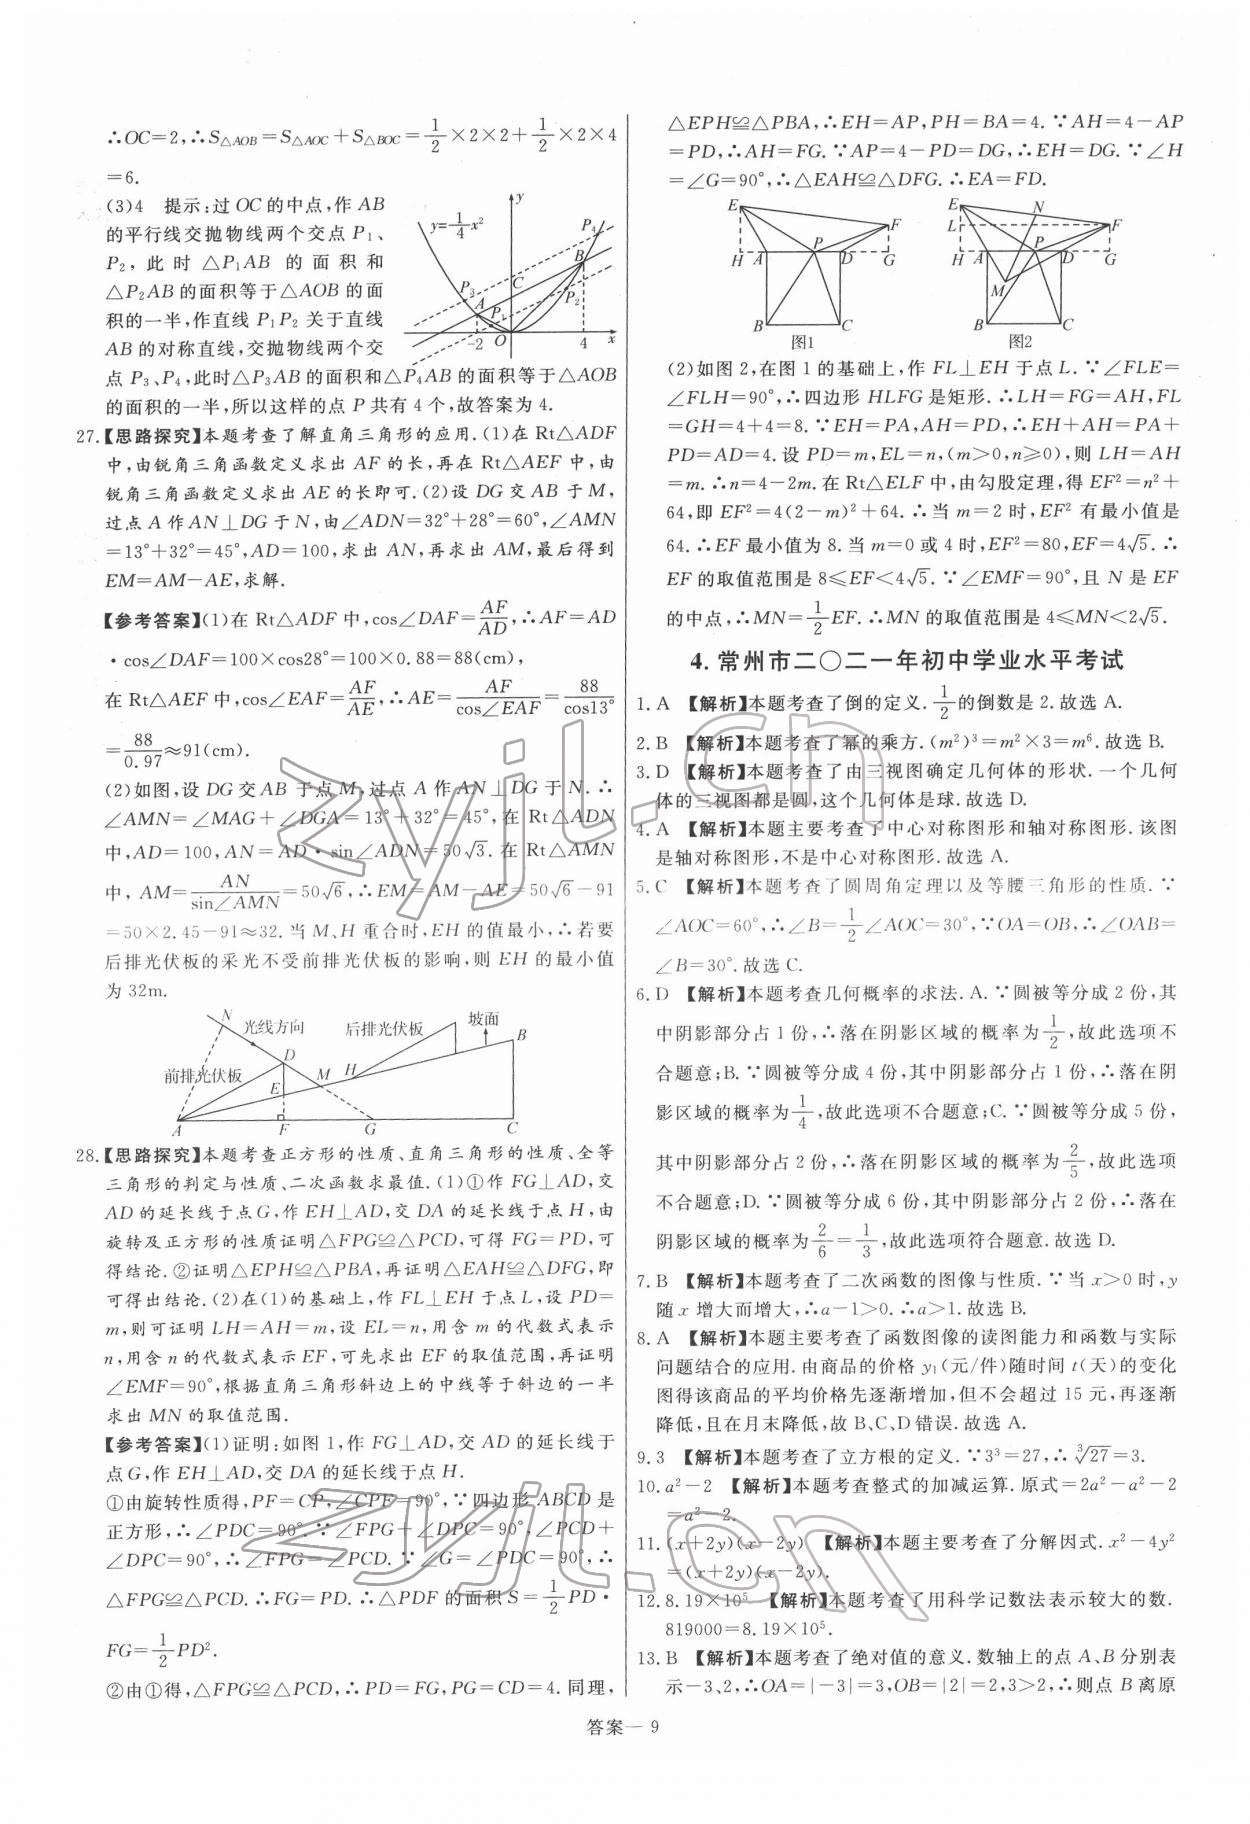 ∴OC=2,∴S△AOB=S△AOC+S△BOC=1/2×2×2+1/2×2×4
=6.
(3)4 提示:过OC的中点,作AB
的平行线交抛物线两个交点P₁、
P₂,此时△P₁AB的面积和
△P₂AB的面积等于△AOB的面
积的一半,作直线P₁P₂关于直线
AB的对称直线,交抛物线两个交
点P₃、P₄,此时△P₃AB的面积和△P₄AB的面积等于△AOB
的面积的一半,所以这样的点P共有4个,故答案为4.
y=1/4x²
y
P₄
B
C
P₃
A
P₁
P₂
-2
O
4
x
27.【思路探究】本题考查了解直角三角形的应用.(1)在Rt△ADF
中,由锐角三角函数定义求出AF的长,再在Rt△AEF中,由
锐角三角函数定义求出AE的长即可.(2)设DG交AB于M,
过点A作AN⊥DG于N,由∠ADN=32°+28°=60°,∠AMN
=13°+32°=45°,AD=100,求出AN,再求出AM,最后得到
EM=AM-AE,求解.
【参考答案】(1)在Rt△ADF中,cos∠DAF=AF/AD,∴AF=AD
·cos∠DAF=100×cos28°=100×0.88=88(cm),
在Rt△AEF中,cos∠EAF=AF/AE,∴AE=AF/cos∠EAF=88/cos13°
=88/0.97≈91(cm).
(2)如图,设DG交AB于点M,过点A作AN⊥DG于N.∴
∠AMN=∠MAG+∠DGA=13°+32°=45°,在Rt△ADN
中,AD=100,AN=AD·sin∠ADN=50√3.在Rt△AMN
中,AM=AN/sin∠AMN=50√6,∴EM=AM-AE=50√6-91
=50×2.45-91≈32.当M、H重合时,EH的值最小,∴若要
后排光伏板的采光不受前排光伏板的影响,则EH的最小值
为32m.
N
光线方向
后排光伏板
坡面
B
D
前排光伏板
M
H
E
A
F
G
C
28.【思路探究】本题考查正方形的性质、直角三角形的性质、全等
三角形的判定与性质、二次函数求最值.(1)①作FG⊥AD,交
AD的延长线于点G,作EH⊥AD,交DA的延长线于点H,由
旋转及正方形的性质证明△FPG≌△PCD,可得FG=PD,可
得结论.②证明△EPH≌△PBA,再证明△EAH≌△DFG,即
可得出结论.(2)在(1)的基础上,作FL⊥EH于点L,设PD=
m,则可证明LH=AH=m,设EL=n,用含m的代数式表示
n,用含n的代数式表示EF,可先求出EF的取值范围,再证明
∠EMF=90°,根据直角三角形斜边上的中线等于斜边的一半
求出MN的取值范围.
【参考答案】(1)证明:如图1,作FG⊥AD,交AD的延长线于
点G,作EH⊥AD,交DA的延长线于点H.
①由旋转性质得,PF=CP,∠CPF=90°,∵四边形ABCD是
正方形,∴∠PDC=90°.∵∠FPG+∠DPC=90°,∠PCD+
∠DPC=90°,∴∠FPG=∠PCD.∵∠G=∠PDC=90°,∴
△FPG≌△PCD.∴FG=PD.∴△PDF的面积S=1/2PD·
FG=1/2PD².
②由①得,△FPG≌△PCD,∴PD=FG,PG=CD=4.同理,
△EPH≌△PBA,∴EH=AP,PH=BA=4.∵AH=4-AP
=PD,∴AH=FG.∵AP=4-PD=DG,∴EH=DG.∵∠H
=∠G=90°,∴△EAH≌△DFG.∴EA=FD.
E
P
F
H
A
D
G
B
C
图1
E
N
L
P
F
H
A
D
G
M
B
C
图2
(2)如图2,在图1的基础上,作FL⊥EH于点L.∵∠FLE=
∠FLH=90°,∴四边形HLFG是矩形.∴LH=FG=AH,FL
=GH=4+4=8.∵EH=PA,AH=PD,∴EH+AH=PA+
PD=AD=4.设PD=m,EL=n,(m>0,n≥0),则LH=AH
=m.∴n=4-2m.在Rt△ELF中,由勾股定理,得EF²=n²+
64,即EF²=4(2-m)²+64.∴当m=2时,EF²有最小值是
64.∴EF最小值为8.当m=0或4时,EF²=80,EF=4√5.∴
EF的取值范围是8≤EF<4√5.∵∠EMF=90°,且N是EF
的中点,∴MN=1/2EF.∴MN的取值范围是4≤MN<2√5.
4.常州市二〇二一年初中学业水平考试
1.A 【解析】本题考查了倒的定义.1/2的倒数是2.故选A.
2.B 【解析】本题考查了幂的乘方.(m²)³=m²×3=m⁶.故选B.
3.D 【解析】本题考查了由三视图确定几何体的形状.一个几何
体的三视图都是圆,这个几何体是球.故选D.
4.A 【解析】本题主要考查了中心对称图形和轴对称图形.该图
是轴对称图形,不是中心对称图形.故选A.
5.C 【解析】本题考查了圆周角定理以及等腰三角形的性质.∵
∠AOC=60°,∴∠B=1/2∠AOC=30°,∵OA=OB,∴∠OAB=
∠B=30°.故选C.
6.D 【解析】本题考查几何概率的求法.A.∵圆被等分成2份,其
中阴影部分占1份,∴落在阴影区域的概率为1/2,故此选项不
合题意;B.∵圆被等分成4份,其中阴影部分占1份,∴落在阴
影区域的概率为1/4,故此选项不合题意;C.∵圆被等分成5份,
其中阴影部分占2份,∴落在阴影区域的概率为2/5,故此选项
不合题意;D.∵圆被等分成6份,其中阴影部分占2份,∴落在
阴影区域的概率为2/6=1/3,故此选项符合题意.故选D.
7.B 【解析】本题考查了二次函数的图像与性质.∵当x>0时,y
随x增大而增大,∴a-1>0.∴a>1.故选B.
8.A 【解析】本题主要考查了函数图像的读图能力和函数与实际
问题结合的应用.由商品的价格y₁(元/件)随时间t(天)的变化
图得该商品的平均价格先逐渐增加,但不会超过15元,再逐渐
降低,且在月末降低,故B、C、D错误.故选A.
9.3 【解析】本题考查了立方根的定义.∵3³=27,∴³√27=3.
10.a²-2 【解析】本题考查整式的加减运算.原式=2a²-a²-2
=a²-2.
11.(x+2y)(x-2y) 【解析】本题主要考查了分解因式.x²-4y²
=(x+2y)(x-2y).
12.8.19×10⁵ 【解析】本题考查了用科学记数法表示较大的数.
819000=8.19×10⁵.
13.B 【解析】本题考查了绝对值的意义.数轴上的点A、B分别表
示-3、2,∴OA=|-3|=3,OB=|2|=2,3>2,∴则点B离原
答案— 9
zyjl.cn
zyjl.cn